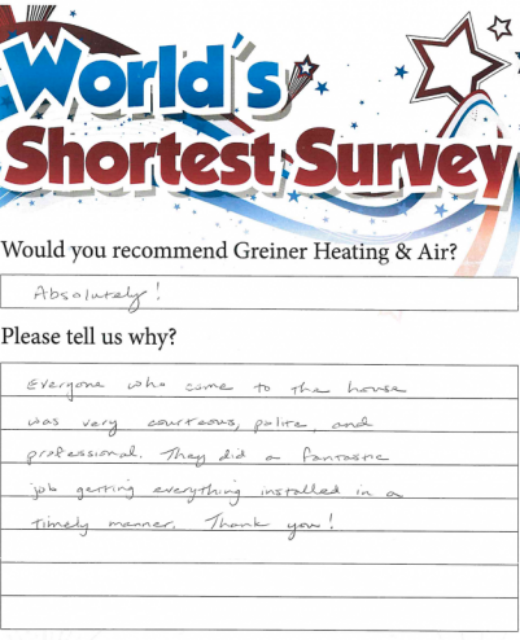 World's
Shortest Survey
Would you recommend Greiner Heating & Air?
Absolutely!
Please tell us why?
Everyone who came to the house
was very courteous, polite, and
professional. They did a fantastic
job getting everything installed in a
timely manner. Thank you!